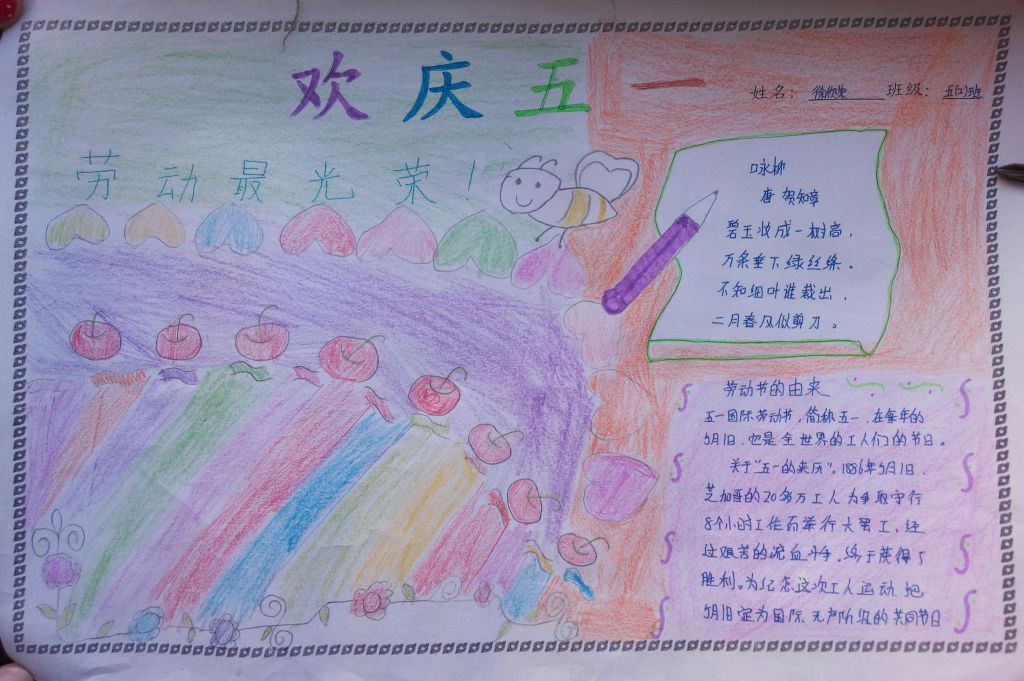 欢庆五一
姓名： 班级：五(2)班
劳动最光荣！
咏柳
唐 贺知章
碧玉妆成一树高，
万条垂下绿丝绦。
不知细叶谁裁出，
二月春风似剪刀。
劳动节的由来
五一国际劳动节，简称五一，在每年的
5月1日，它是全世界的工人们的节日。
关于“五一的来历”，1886年5月1日，
芝加哥的20多万工人为争取守行
8个小时工作而举行大罢工，经
过艰苦的流血斗争，终于获得了
胜利。为纪念这次工人运动，把
5月1日定为国际无产阶级的共同节日